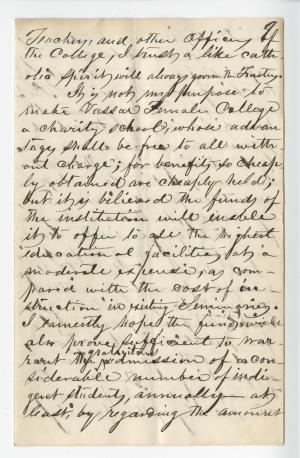 7
Teachers, and other Officers of
the College, I trust a like cath-
olic spirit will always govern the Trustees.
It is not my purpose to
make Vassar Female College
a charity school, whose advan
tages shall be free to all with-
out charge; for benefits so cheap-
ly obtained are cheaply held;
but it is believed the funds of
the institution will enable
it to offer to all the highest
educational facilities at a
moderate expense, as com-
pared with the cost of in-
struction in existing Seminaries.
I earnestly hope the funds will
also prove sufficient to war-
rant the gratuitous admission of a con-
siderable number of indi-
gent students, annually—at
least, by regarding the amount